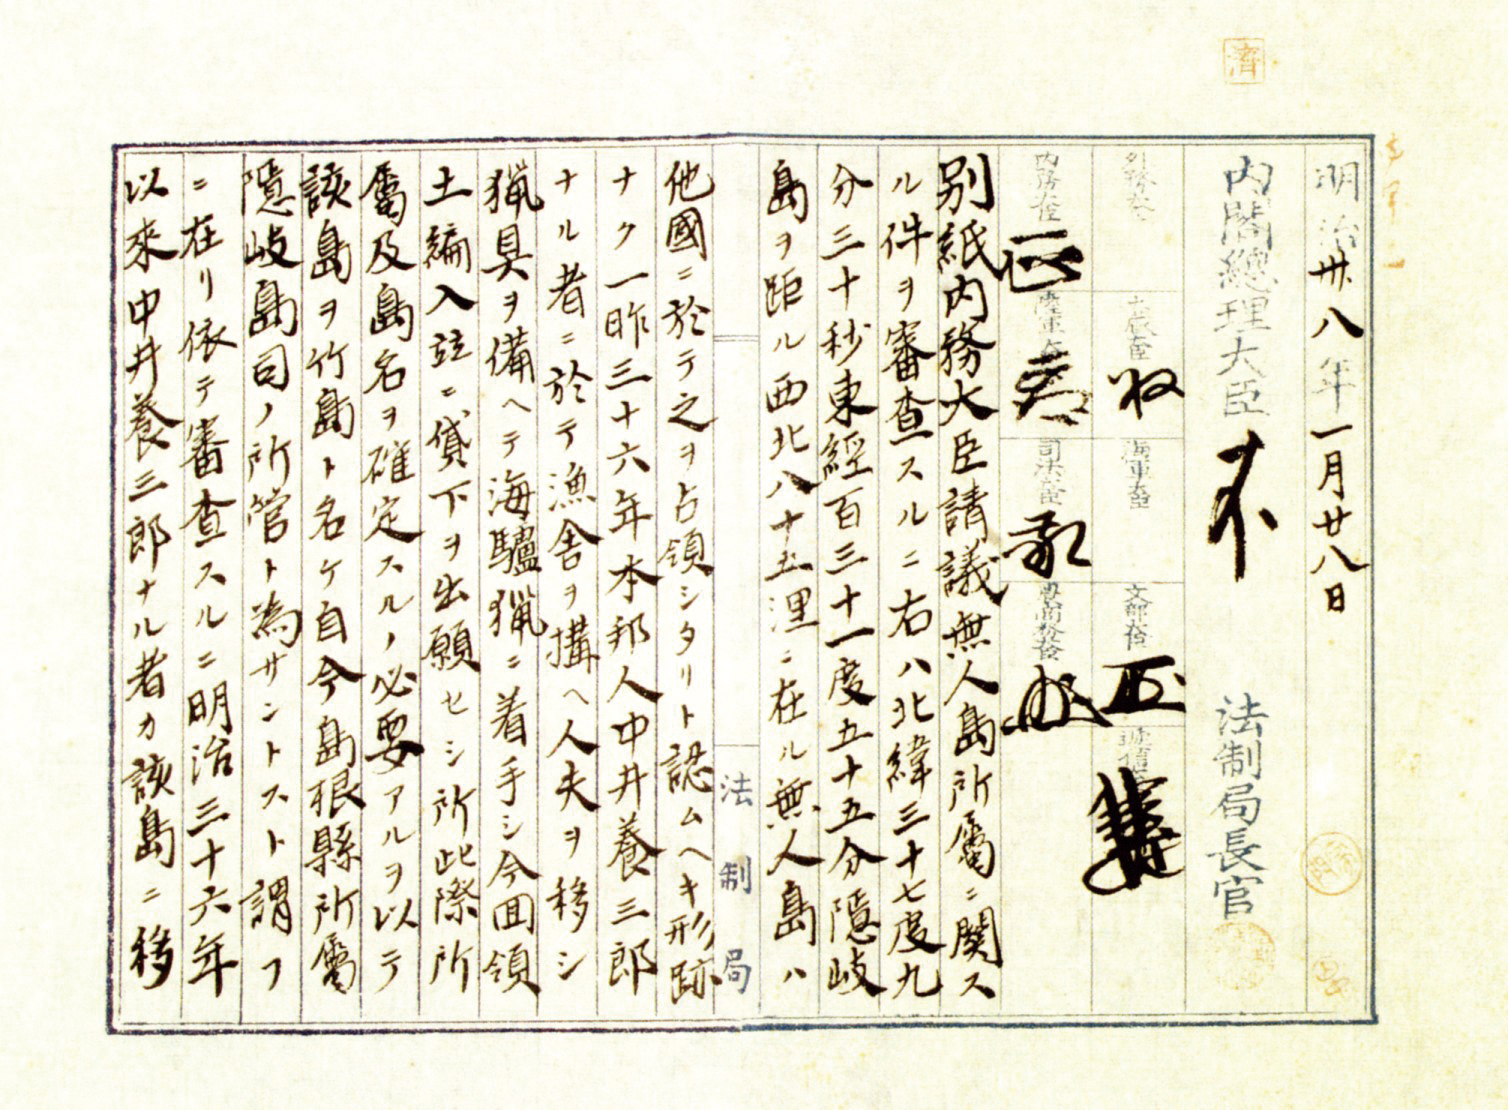 濟
明治卅八年一月廿八日
内閣總理大臣
法制局長官
外務大臣
大蔵大臣
海軍大臣
文部大臣
逓信
内務大臣
陸軍大臣
司法大臣
農商務大臣
別紙内務大臣請議無人島所屬ニ關ス
ル件ヲ審査スルニ右ハ北緯三十七度九
分三十秒東經百三十一度五十五分隱岐
島ヲ距ル西北八十五浬ニ在ル無人島ハ
法制局
他國ニ於テ之ヲ占領シタリト認ムヘキ形跡
ナク一昨三十六年本邦人中井養三郎
ナル者ニ於テ漁舎ヲ搆ヘ人夫ヲ移シ
猟具ヲ備ヘテ海驢猟ニ着手シ今回領
土編入竝ニ貸下ヲ出願セシ所此際所
屬及島名ヲ確定スルノ必要アルヲ以テ
該島ヲ竹島ト名ケ自今島根縣所屬
隱岐島司ノ所管ト為サントスト謂フ
ニ在リ依テ審査スルニ明治三十六年
以來中井養三郎ナル者カ該島ニ移